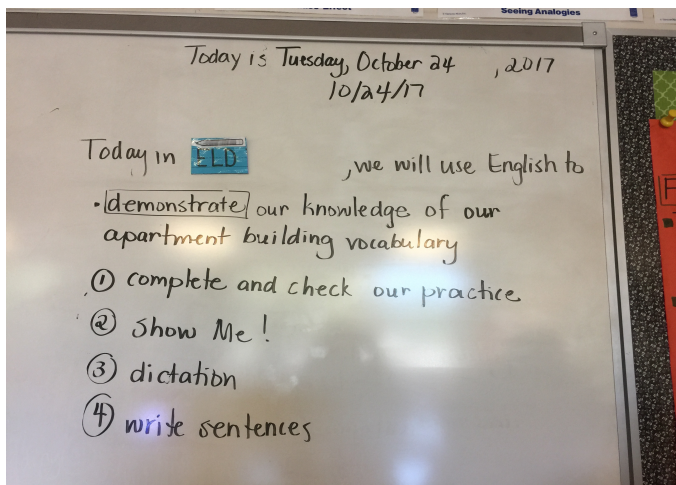 Seeing Analogies
Today is Tuesday, October 24 , 2017
10/24/17
Today in ELD , we will use English to
• demonstrate our knowledge of our
apartment building vocabulary
① complete and check our practice
② Show Me!
③ dictation
④ write sentences